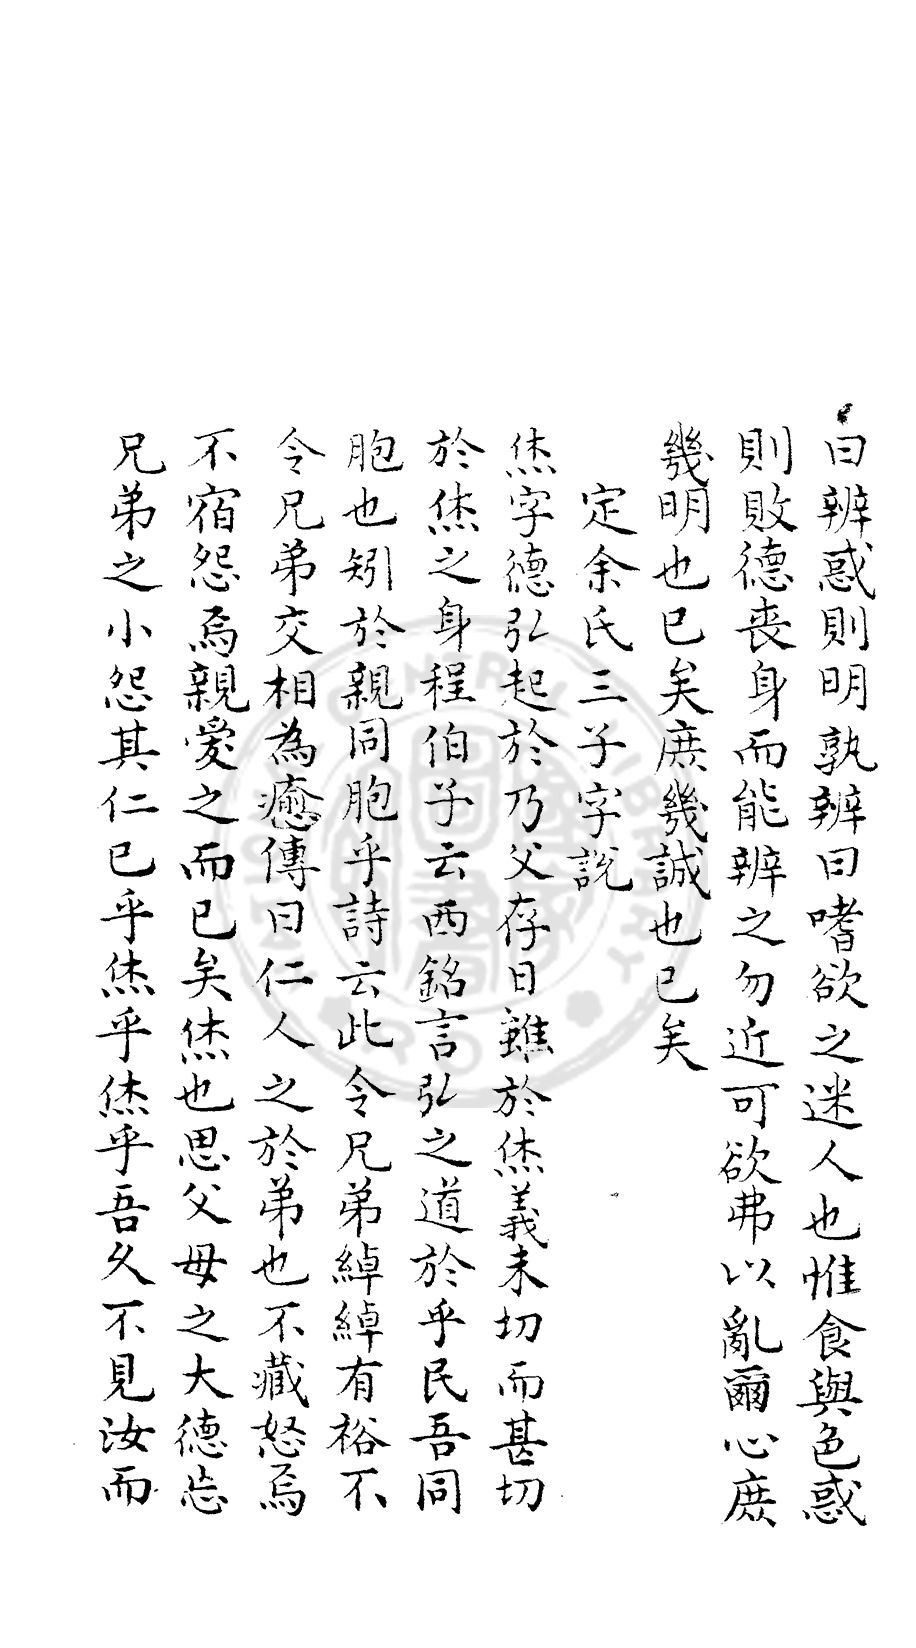 曰辨惑則明孰辨曰嗜欲之迷人也惟食與色惑
則敗德喪身而能辨之勿近可欲弗以亂爾心庶
幾明也已矣庶幾誠也已矣
定余氏三子字說
烋字德弘起於乃父存日雖於烋義未切而甚切
於烋之身程伯子云西銘言弘之道於乎民吾同
胞也矧於親同胞乎詩云此令兄弟綽綽有裕不
令兄弟交相為癒傳曰仁人之於弟也不藏怒焉
不宿怨焉親愛之而已矣烋也思父母之大德忘
兄弟之小怨其仁已乎烋乎烋乎吾久不見汝而